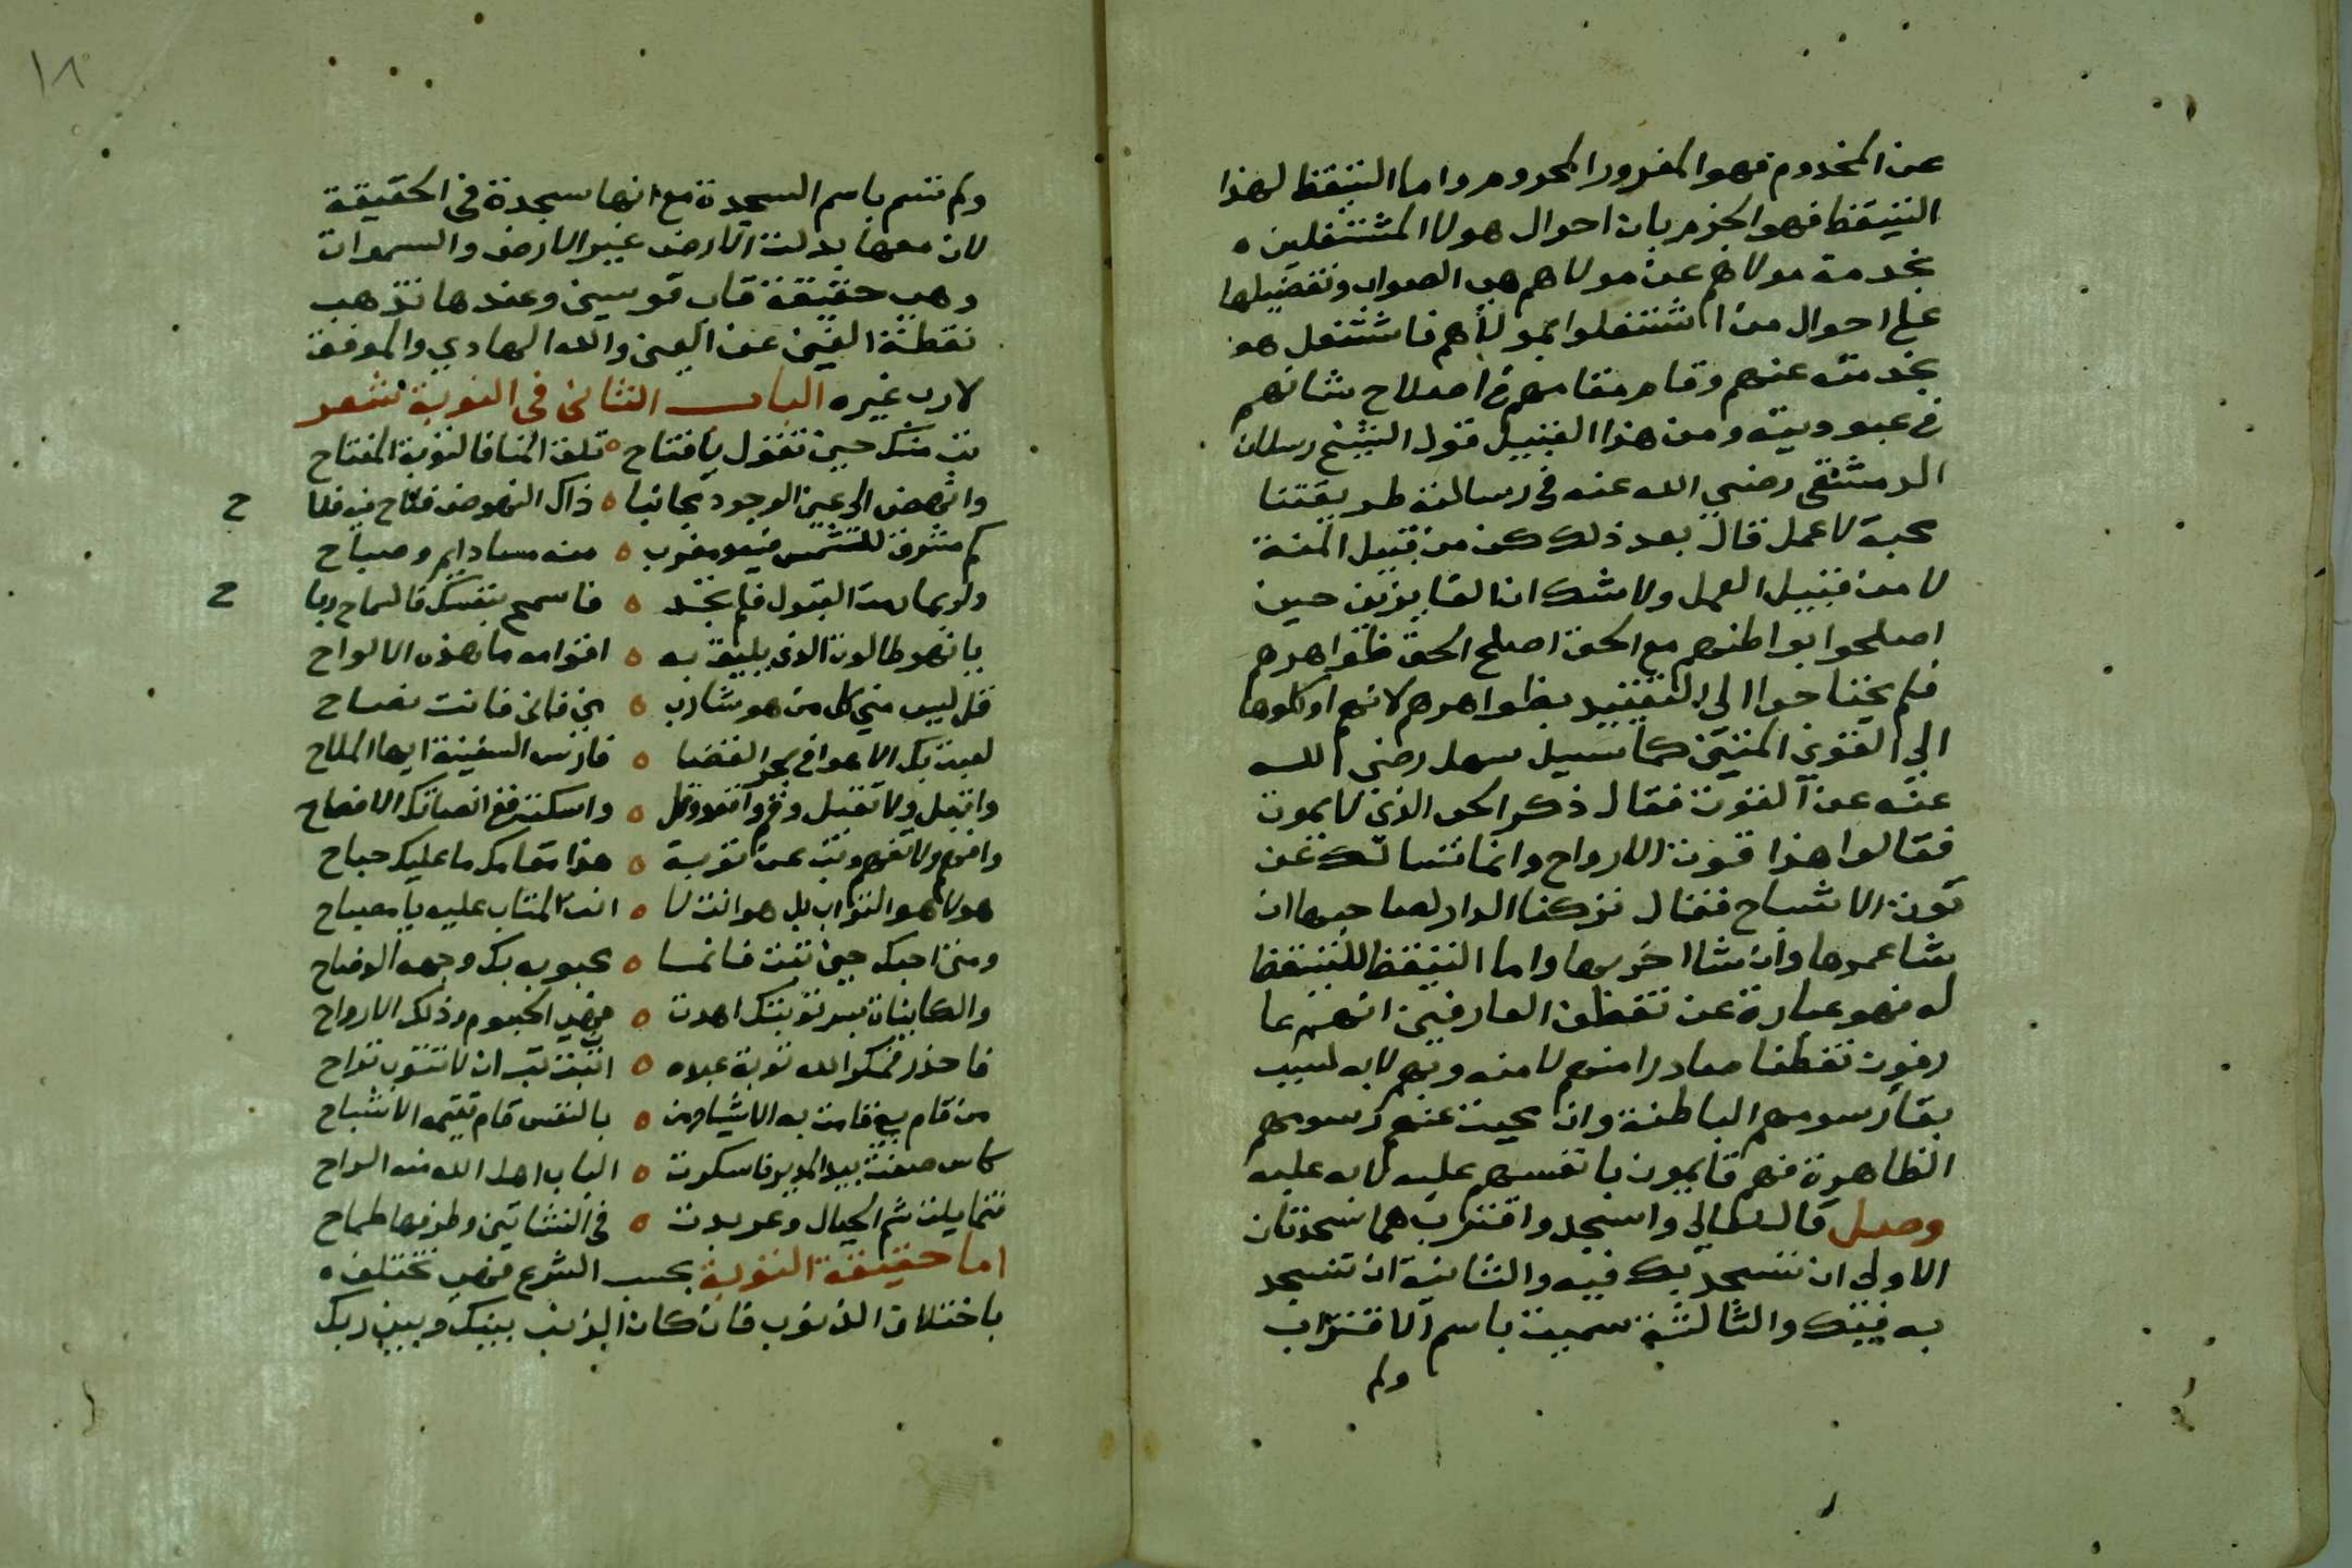 عن المخدوم فهو المغرور المحروم واما التيقظ لهذا
التيقظ فهو الجزم بان احوال هولا المشتغلين
بخدمة مولاهم عن مولاهم هي الصواب وتفضيلها
على احوال من اشتغلوا بمولاهم فاشتغل هو
بخدمته عنهم وقام مقامهم في اصلاح شانهم
في عبوديته ومن هذا القبيل قول الشيخ رسلان
الدمشقي رضي الله عنه في رسالته طريقتنا
محبة لا عمل قال بعد ذلك كن من قبيل المنة
لا من قبيل العمل ولا شك ان الفايزين حين
اصلحوا بواطنهم مع الحق اصلح الحق ظواهرهم
فلم يحتاجوا الى التقييد بظواهرهم لانهم اوكلوها
الى القوي المتين كما سيل سهل رضي الله
عنه عن القوت فقال ذكر الحي الذي لا يموت
فقالوا هذا قوت الارواح وانما نسالك عن
قوت الاشباح فقال تركنا الدار لصاحبها ان
شا عمرها وان شا اخربها واما التيقظ للتيقظ
له فهو عبارة عن تيقظ العارفين انهم عا
رفون تيقظا صادرا منهم لا منه وبهم لا به لسبب
بقا رسومهم الباطنة وان محيت عنهم رسومهم
الظاهرة فهم قايمون بانفسهم عليه لا به عليه
وصل قال تعالى واسجد واقترب هما سجدتان
الاولى ان تسجد بك فيه والثانية ان تسجد
به فيك والثالثة سميت باسم الاقتراب
ولم
١٨
ولم تسم باسم السجدة مع انها سجدة في الحقيقة
لان معها بدلت الارض غير الارض والسموات
وهي حقيقة قاب قوسين وعندها تذهب
نقطة الغين عن العين والله الهادي والموفق
لا رب غيره الباب الثاني في التوبة شعر
تب منك حين تقول يا فتاح تلق المنا فالتوبة المفتاح
وانهض الى عين الوجود مجانبا ذاك النهوض فلاح فيه فلا ح
كم مشرق للشمس فيه ومغرب منه مسا دايم وصباح
ولربما رمت القبول فلم تجد فاسمح بنفسك فالسماح ربا ح
يا نهر طالوت الذي بليت به اقوامه ما هذه الالواح
قل ليس مني كل من هو شارب مني فاني فانت نضاح
لعبت بك الاهوا في بحر الفضا فارس السفينة ايها الملاح
وانقل ولا تقبل وقم واقعد وقل واسكت ففي انصاتك الافصاح
وافهم ولا تفهم وتب عن توبة هذا مقامك ما عليك جباح
هو لا هو التواب بل هو انت لا انت المتاب عليه يا مصباح
ومتى احبك حين تبت فانما محبوبه بك وجهه الوضاح
والكاينات بسر توبتك اهدت فهي الجسوم وذلك الارواح
فاحذر فمكر الله توبة عبده اثبت تب ان لا تتوب تراح
من قام بي قامت به الاشيا ومن بالنفس قام تقيمه الاشباح
كاس صفت بيد المدير فاسكرت الباب اهل الله منه الراح
فتمايلت شم الجبال وعربدت في النشاتين وطرفها طماح
اما حقيقة التوبة بحسب الشرع فهي تختلف
باختلاف الذنوب فان كان الذنب بينك وبين ربك